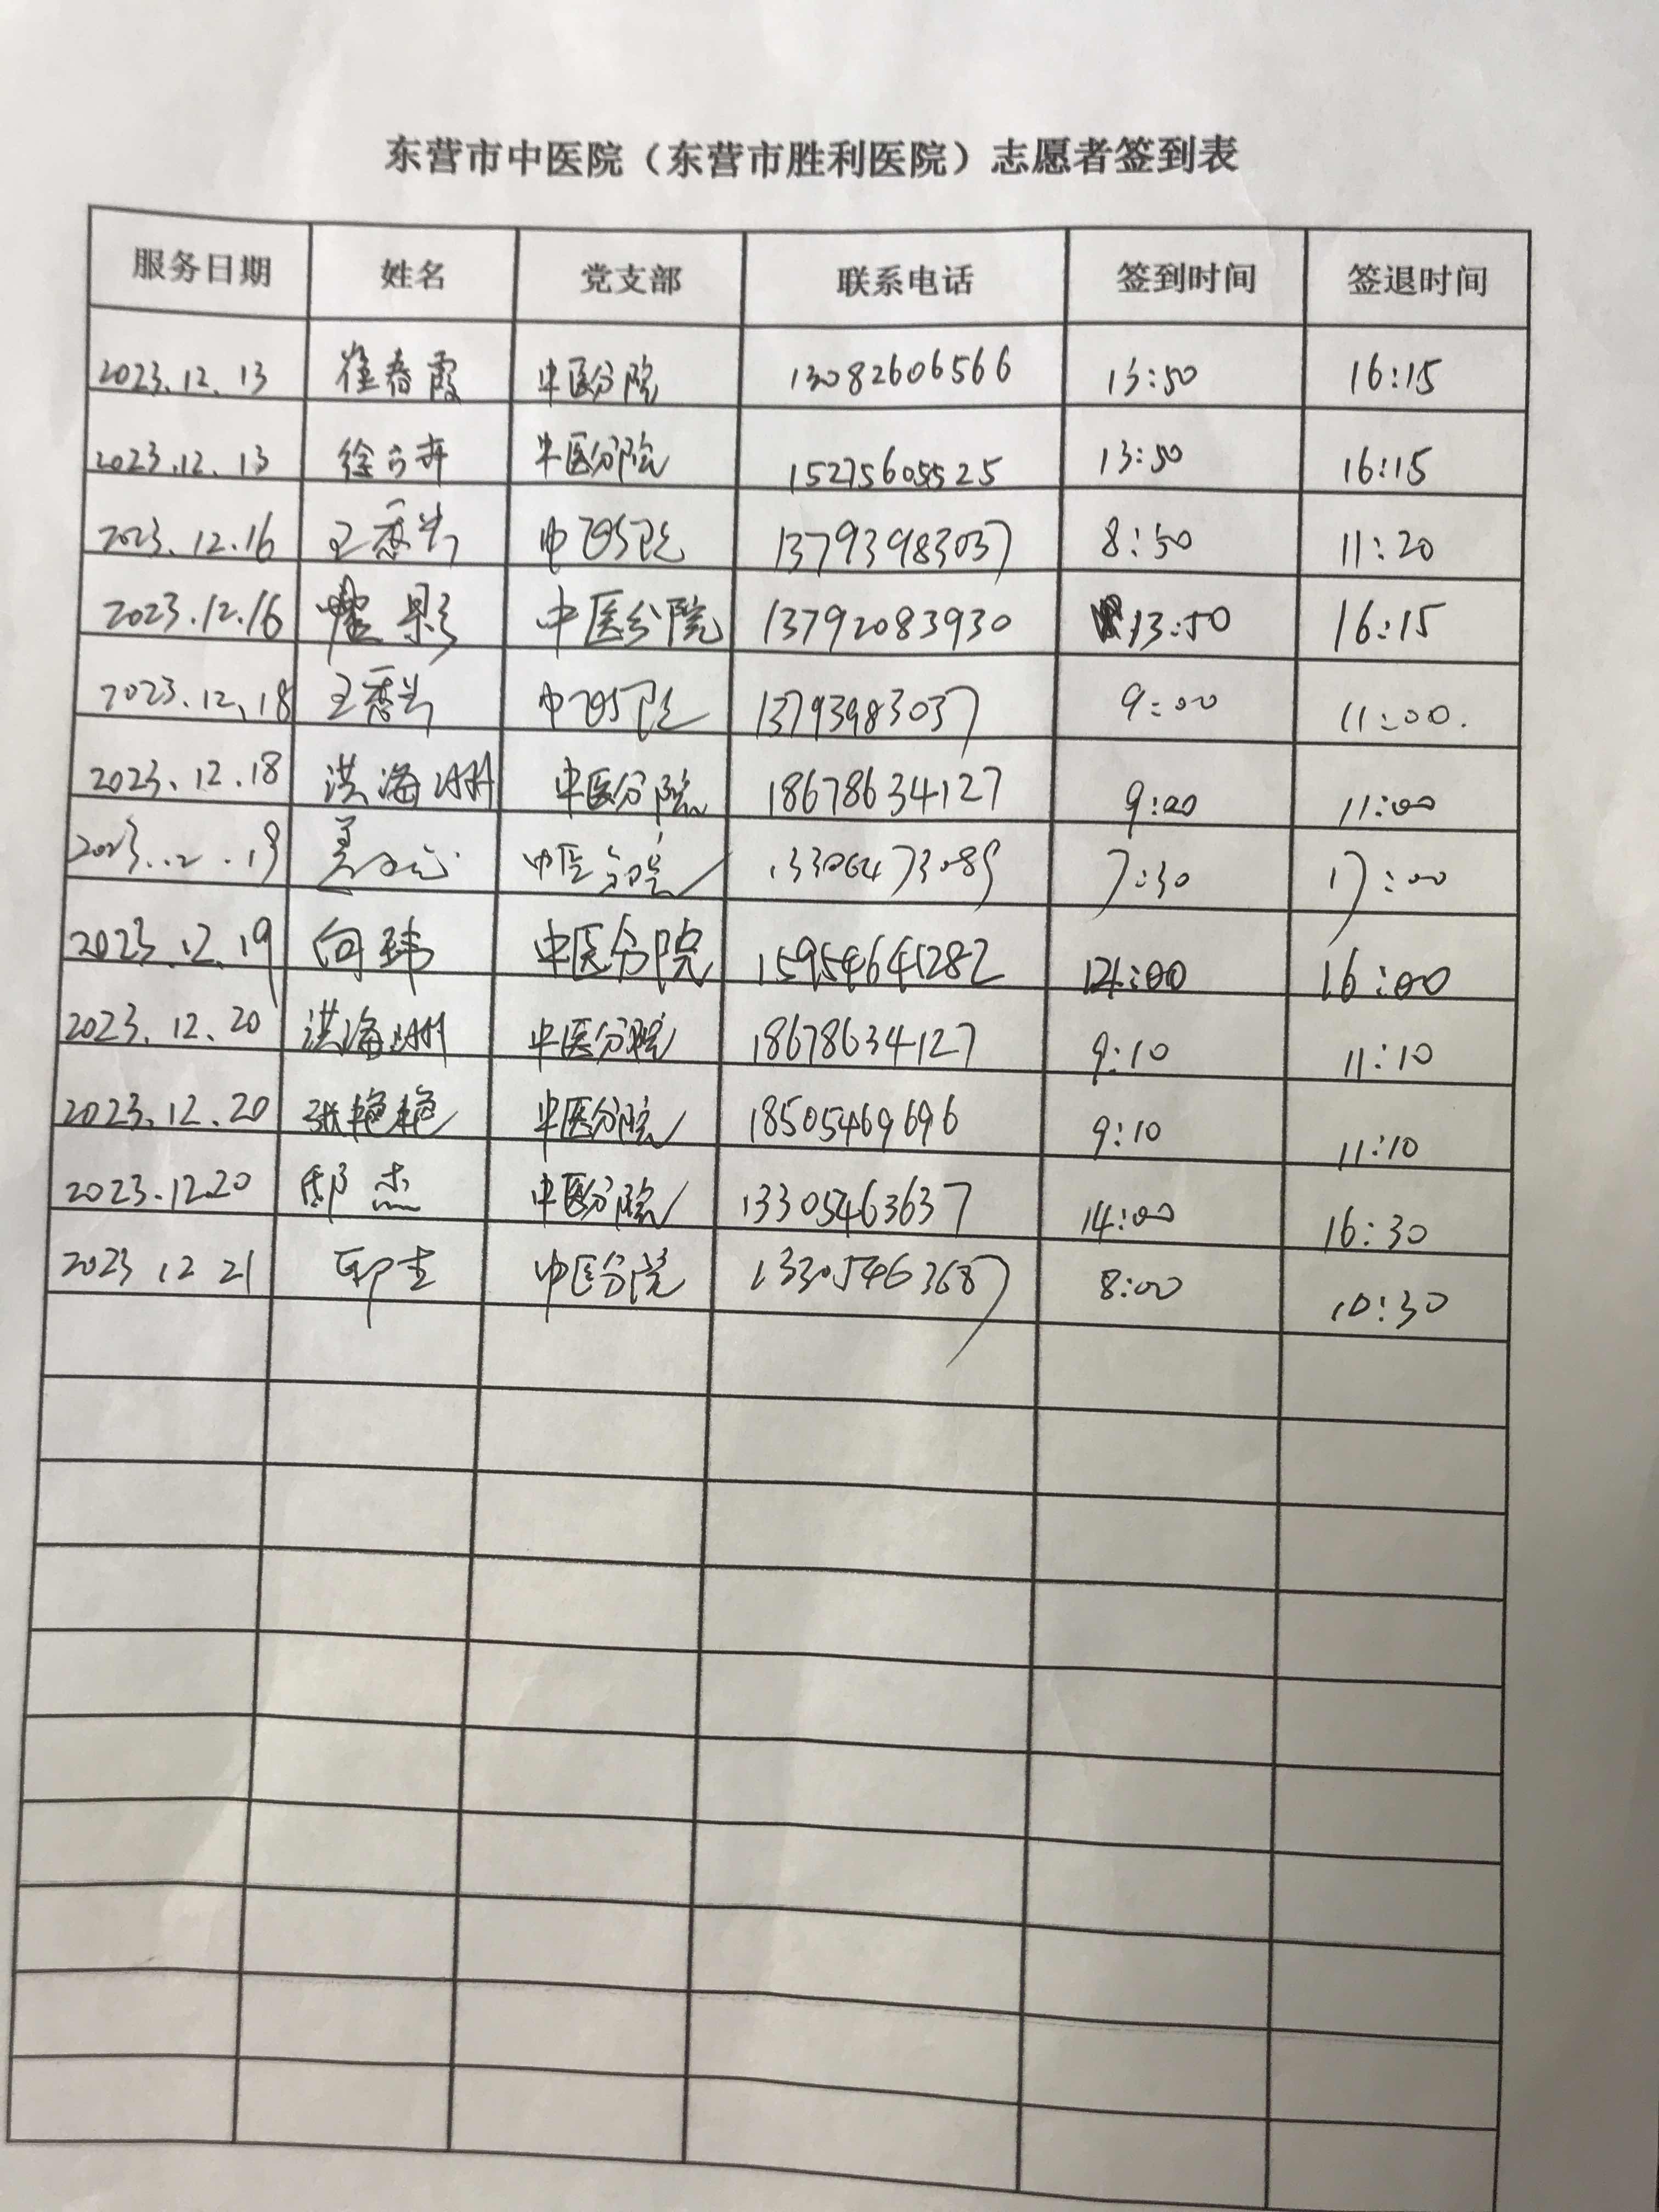 东营市中医院（东营市胜利医院）志愿者签到表
服务日期 姓名 党支部 联系电话 签到时间 签退时间
2023.12.13 崔春霞 中医分院 13082606566 13:50 16:15
2023.12.13 中医分院 15275605525 13:50 16:15
2023.12.16 13793983037 8:50 11:20
2023.12.16 中医分院 13792083930 13:50 16:15
2023.12.18 13793983037 9:00 11:00.
2023.12.18 洪海洲 中医分院 18678634127 9:00 11:00
中医分院 7:30 17:00
2023.12.19 向玮 中医分院 15954641282 14:00 16:00
2023.12.20 洪海洲 中医分院 18678634127 9:10 11:10
2023.12.20 张艳艳 中医分院 18505469696 9:10 11:10
2023.12.20 中医分院 13305463637 14:00 16:30
2023 12 21 中医分院 8:00 10:30